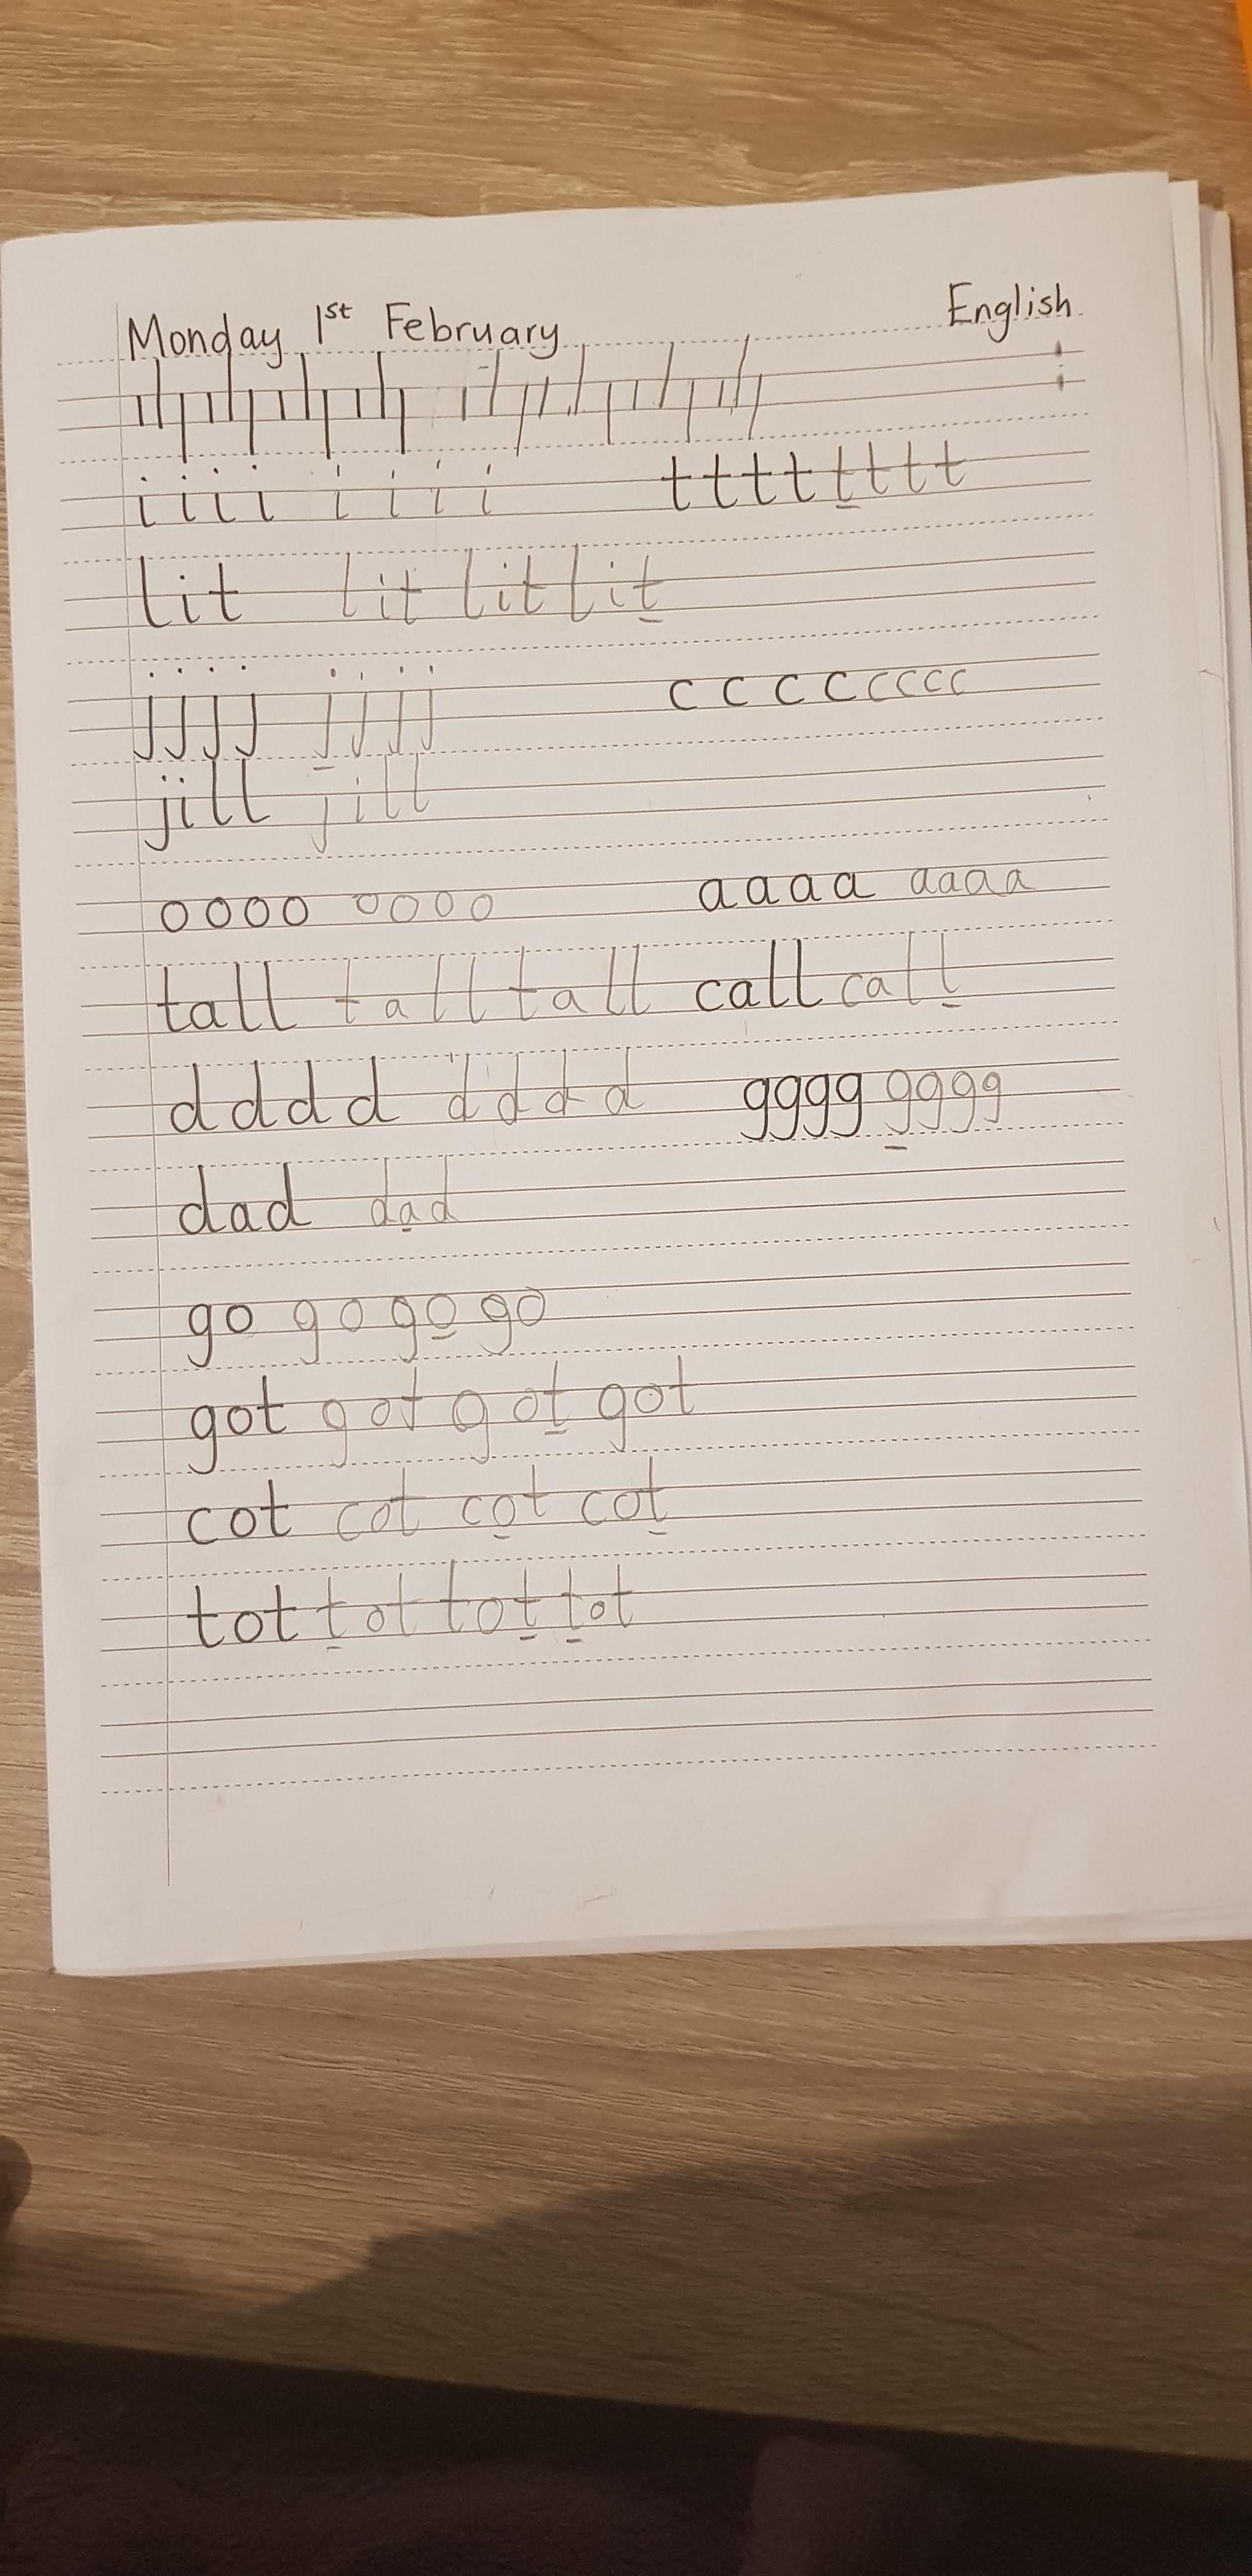 Monday 1st February English
i i i i i i i i t t t t t t t t
lit lit lit lit
j j j j j j j j c c c c c c c c
jill jill
o o o o o o o o a a a a a a a a
tall tall tall call call
d d d d d d d d g g g g g g g g
dad dad
go go go go
got got got got
cot cot cot cot
tot tot tot tot